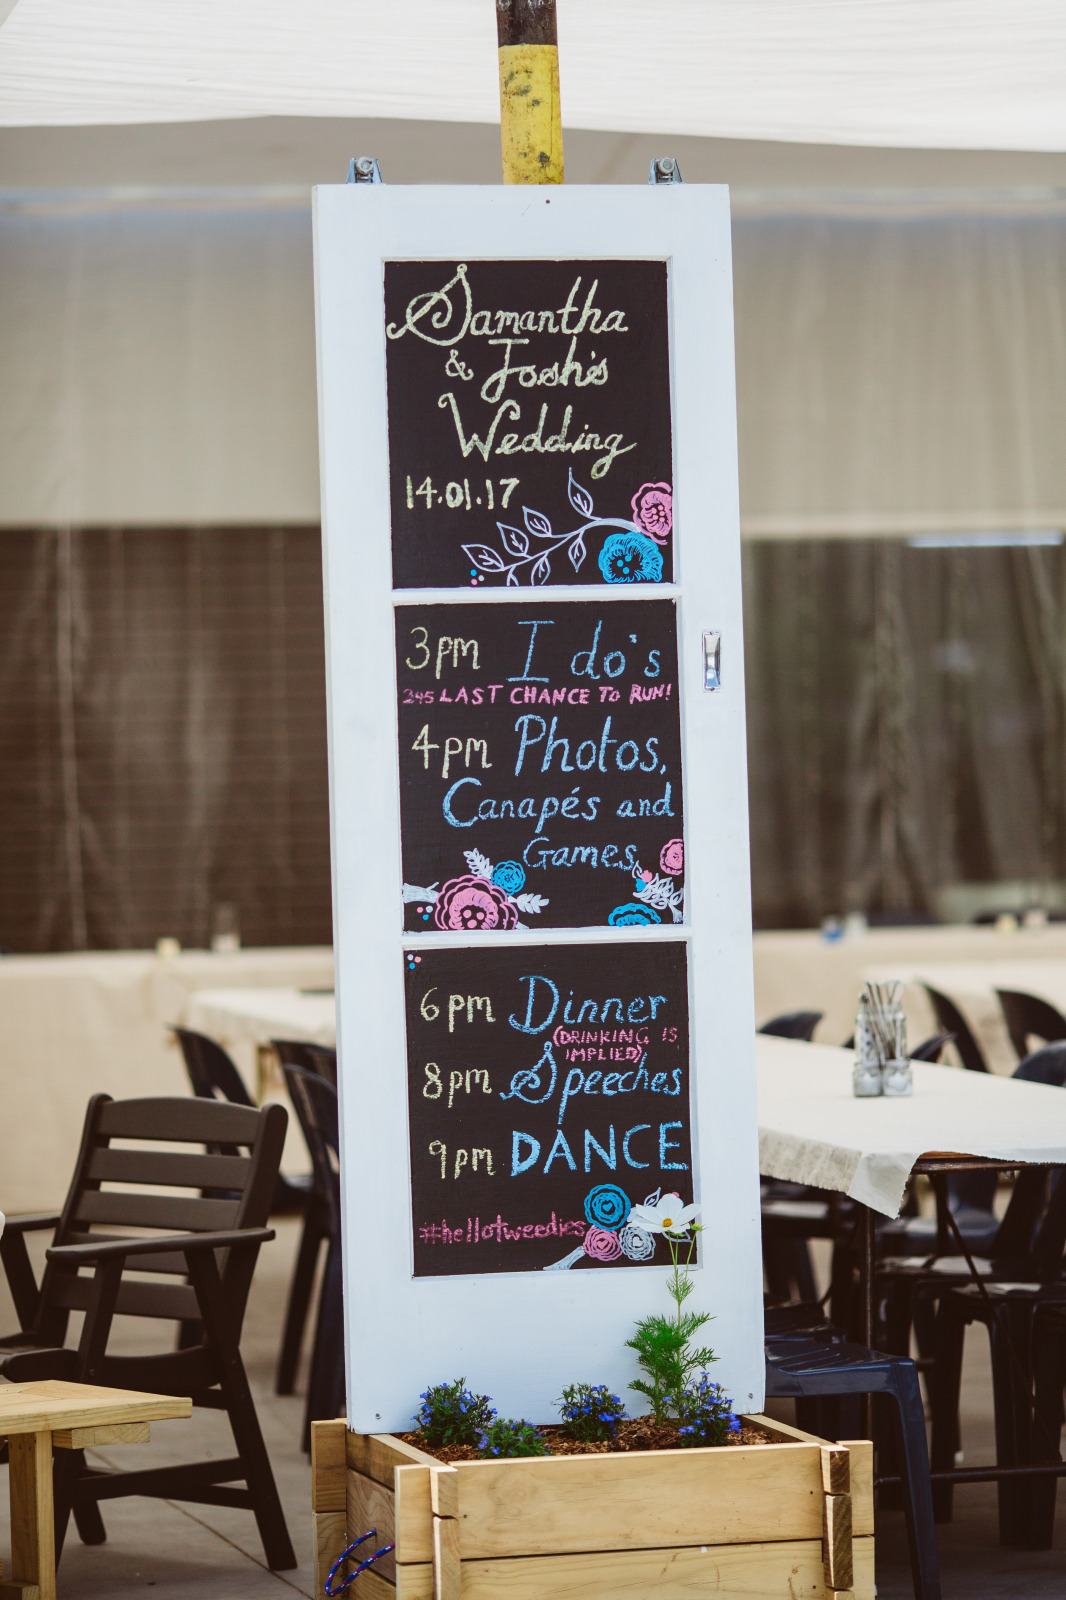 Samantha
& Josh's
Wedding
14.01.17
3pm I do's
345 LAST CHANCE TO RUN!
4pm Photos,
Canapés and
Games
6pm Dinner
(DRINKING IS
IMPLIED)
8pm Speeches
9pm DANCE
#hellotweedies